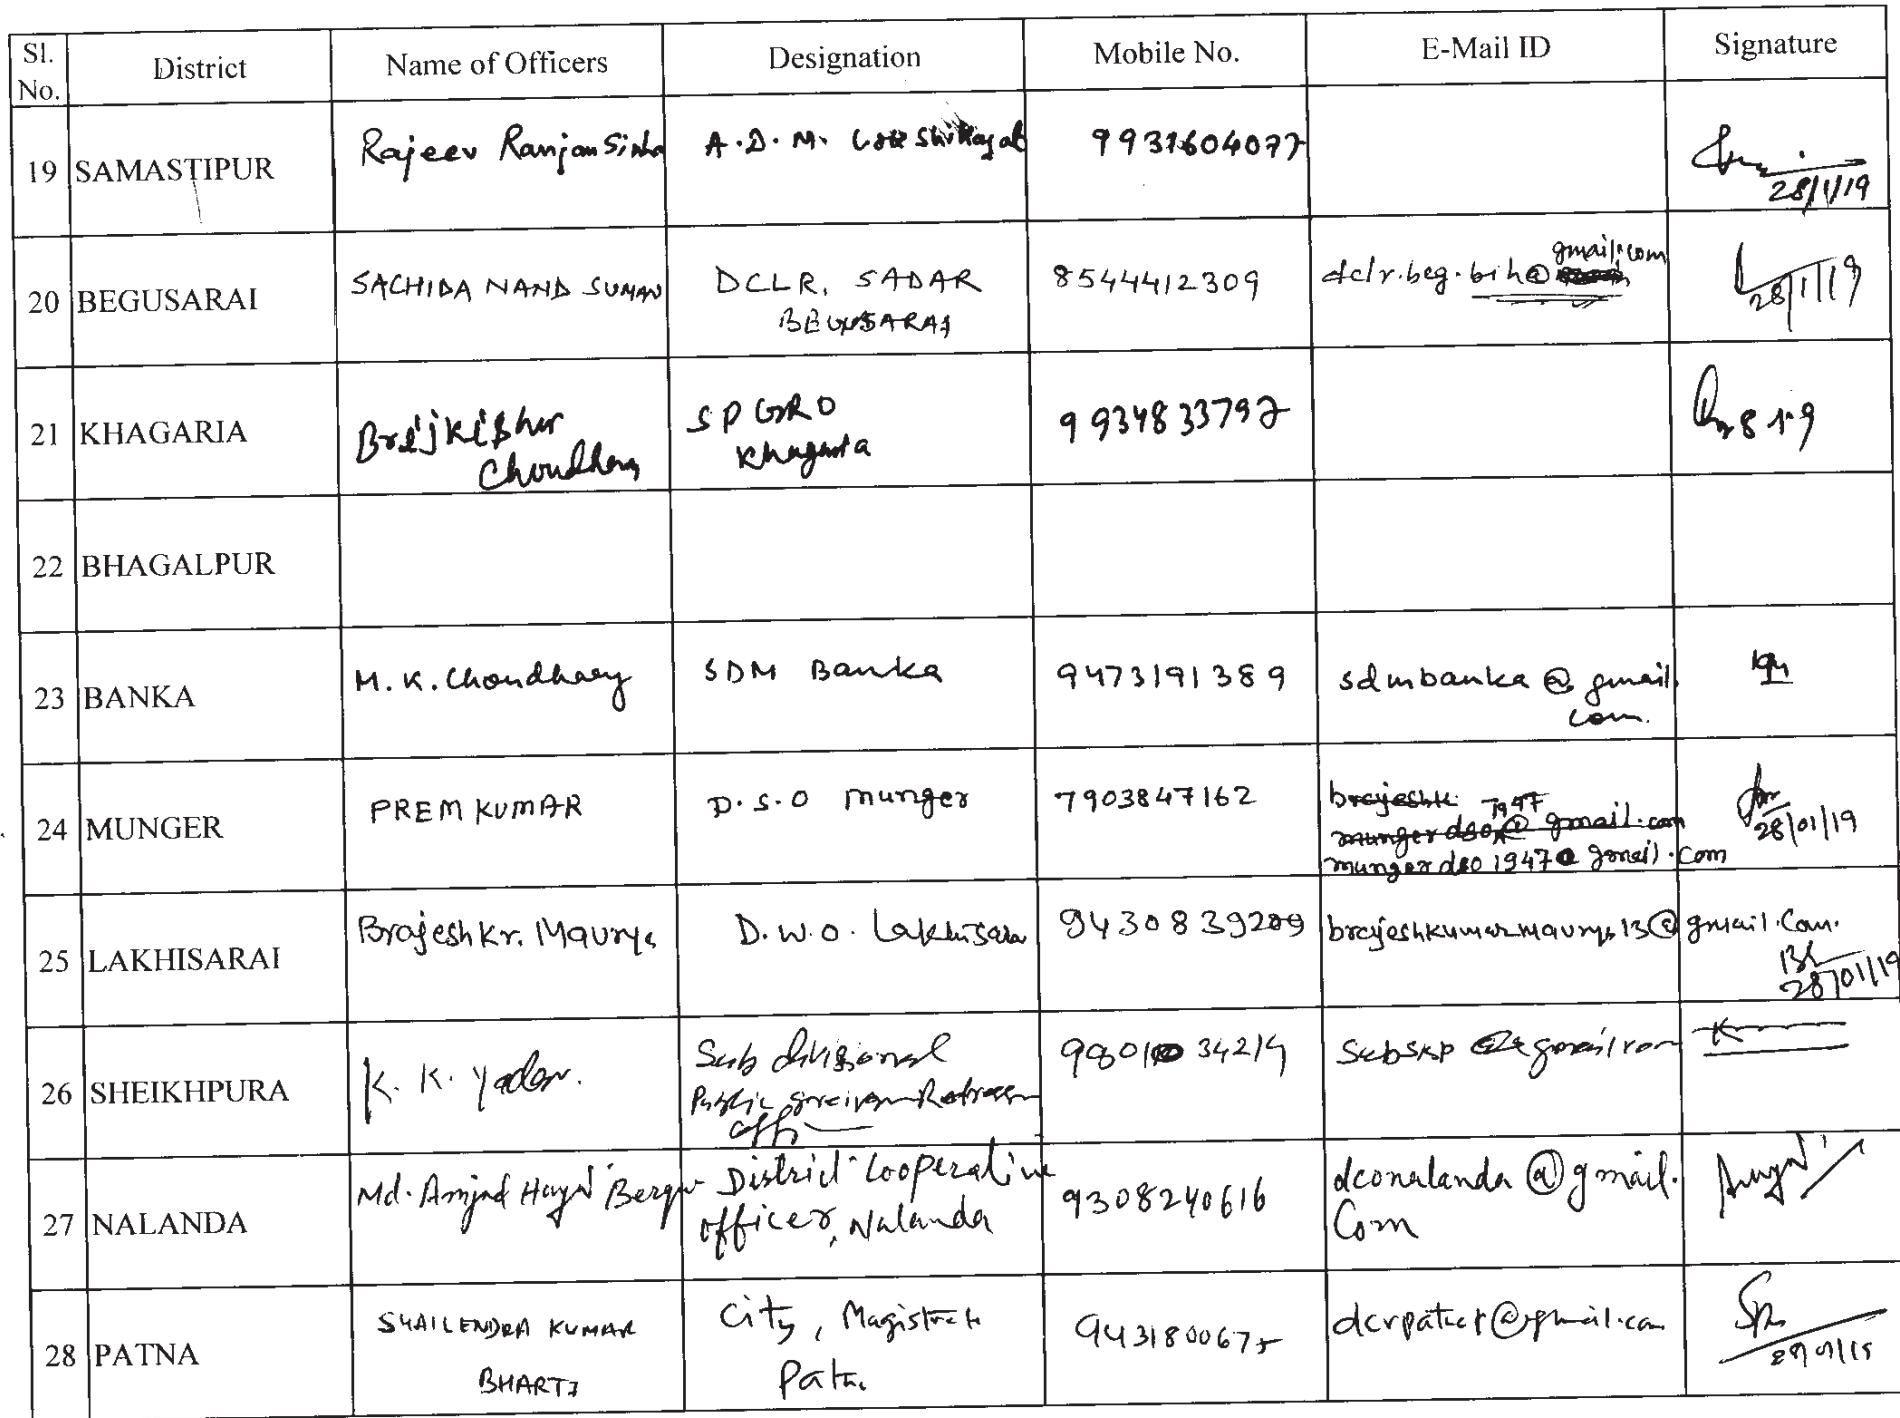 Sl. No. District Name of Officers Designation Mobile No. E-Mail ID Signature
19 SAMASTIPUR Rajeev Ranjan Sinha A.D.M. 9931604077
28/1/19
20 BEGUSARAI SACHIDA NAND SUMAN DCLR, SADAR BEGUSARAI 8544412309 dclr.beg.bih@gmail.com
28/1/19
21 KHAGARIA Brijkishor Choudhary SPGRO Khagaria 9934833797
22 BHAGALPUR
23 BANKA M.K. Choudhary SDM Banka 9473191389 sdmbanka@gmail.com
24 MUNGER PREM KUMAR D.S.O munger 7903847162 mungerdso1947@gmail.com
28/01/19
25 LAKHISARAI Brajesh Kr. Maurya D.W.O. Lakhisarai 9430839209 brajeshkumarmaurya13@gmail.com.
28/01/19
26 SHEIKHPURA K. K. Yadav. Sub divisional Public
27 NALANDA Md. Amjad Hayat District Cooperative officer, Nalanda 9308240616 dconalanda@gmail.com
28 PATNA SHAILENDRA KUMAR BHARTI City, Magistrate Patna 9431800675